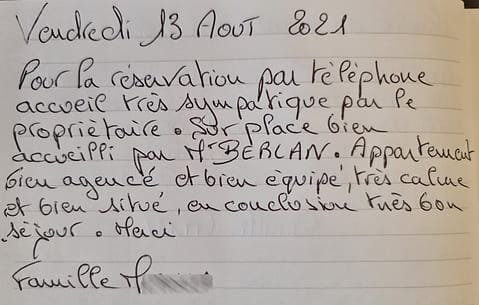 Vendredi 13 Août 2021
Pour la réservation par téléphone
accueil très sympatique par le
propriètaire. Sur place bien
accueilli par Mr BERLAN. Appartement
bien agencé et bien équipé, très calme
et bien situé, en conclusion très bon
séjour. Merci
Famille M